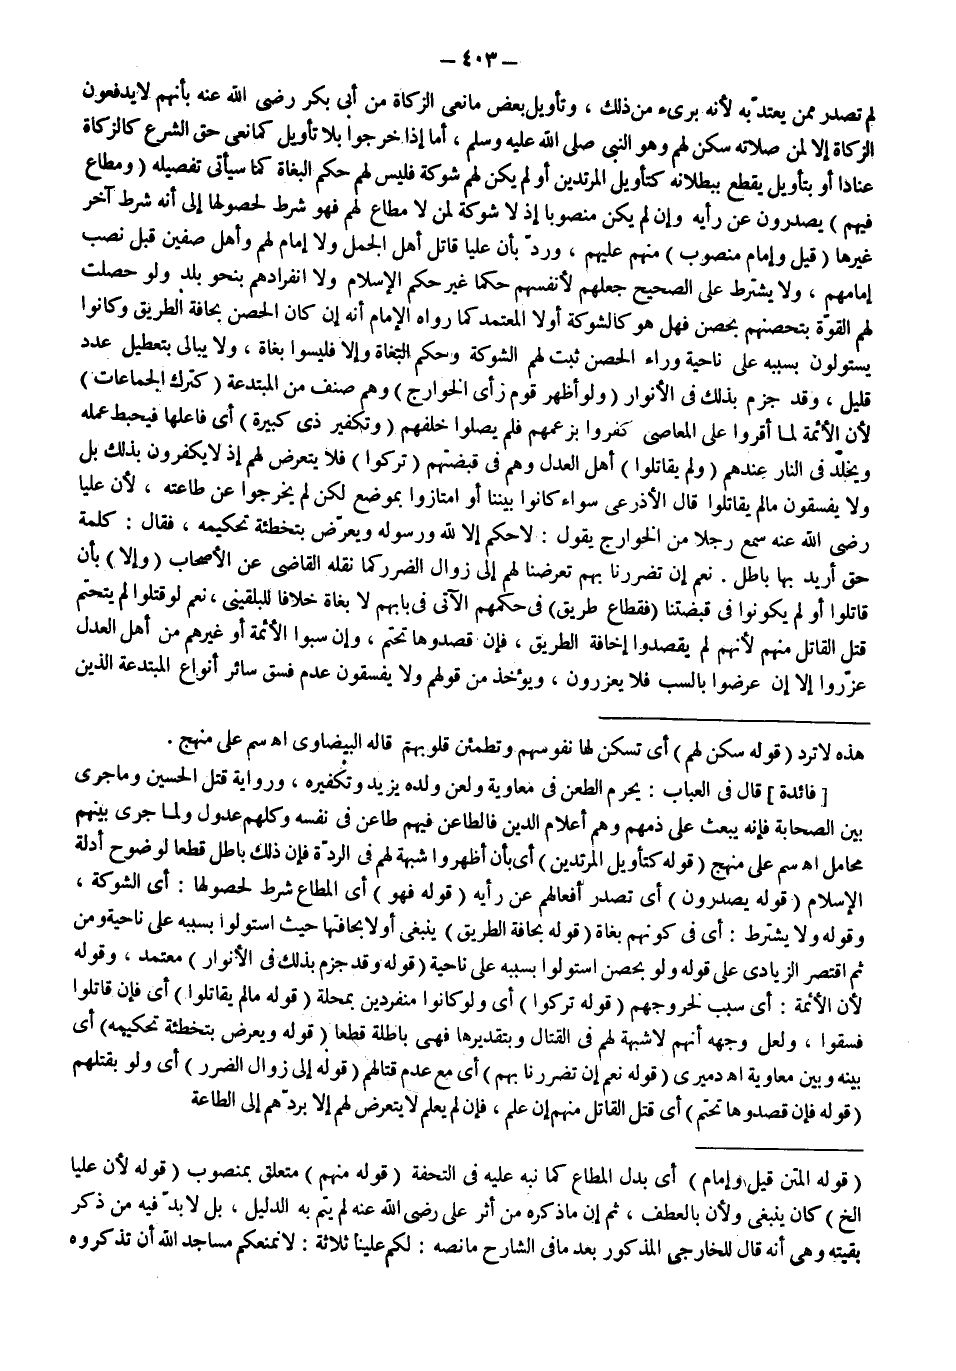 — ٤٠٣ —
لم تصدر ممن يعتدّ به لأنه برىء من ذلك ، وتأويل بعض مانعى الزكاة من أبى بكر رضى الله عنه بأنهم لايدفعون
الزكاة إلا لمن صلاته سكن لهم وهو النبى صلى الله عليه وسلم ، أما إذا خرجوا بلا تأويل كمانعى حق الشرع كالزكاة
عنادا أو بتأويل يقطع ببطلانه كتأويل المرتدين أو لم يكن لهم شوكة فليس لهم حكم البغاة كما سيأتى تفصيله ( ومطاع
فيهم ) يصدرون عن رأيه وإن لم يكن منصوبا إذ لا شوكة لمن لا مطاع لهم فهو شرط لحصولها إلى أنه شرط آخر
غيرها ( قيل وإمام منصوب ) منهم عليهم ، وردّ بأن عليا قاتل أهل الجمل ولا إمام لهم وأهل صفين قبل نصب
إمامهم ، ولا يشترط على الصحيح جعلهم لأنفسهم حكما غير حكم الإسلام ولا انفرادهم بنحو بلد ولو حصلت
لهم القوّة بتحصنهم بحصن فهل هو كالشوكة أولا المعتمد كما رواه الإمام أنه إن كان الحصن بحافة الطريق وكانوا
يستولون بسببه على ناحية وراء الحصن ثبت لهم الشوكة وحكم البغاة وإلا فليسوا بغاة ، ولا يبالى بتعطيل عدد
قليل ، وقد جزم بذلك فى الأنوار ( ولو أظهر قوم رأى الخوارج ) وهم صنف من المبتدعة ( كترك الجماعات )
لأن الأئمة لما أقروا على المعاصى كفروا بزعمهم فلم يصلوا خلفهم ( وتكفير ذى كبيرة ) أى فاعلها فيحبط عمله
ويخلّد فى النار عندهم ( ولم يقاتلوا ) أهل العدل وهم فى قبضتهم ( تركوا ) فلا يتعرض لهم إذ لايكفرون بذلك بل
ولا يفسقون مالم يقاتلوا قال الأذرعى سواء كانوا بيننا أو امتازوا بموضع لكن لم يخرجوا عن طاعته ، لأن عليا
رضى الله عنه سمع رجلا من الخوارج يقول : لاحكم إلا لله ورسوله ويعرّض بتخطئة تحكيمه ، فقال : كلمة
حق أريد بها باطل . نعم إن تضررنا بهم تعرضنا لهم إلى زوال الضرر كما نقله القاضى عن الأصحاب ( وإلا ) بأن
قاتلوا أو لم يكونوا فى قبضتنا (فقطاع طريق) فى حكمهم الآتى فى بابهم لا بغاة خلافا للبلقينى ، نعم لو قتلوا لم يتحتّم
قتل القاتل منهم لأنهم لم يقصدوا إخافة الطريق ، فإن قصدوها تحتم ، وإن سبوا الأئمة أو غيرهم من أهل العدل
عزّروا إلا إن عرضوا بالسب فلا يعزرون ، ويؤخذ من قولهم ولا يفسقون عدم فسق سائر أنواع المبتدعة الذين
هذه لاترد ( قوله سكن لهم ) أى تسكن لها نفوسهم وتطمئن قلوبهم قاله البيضاوى اه سم على منهج .
[ فائدة ] قال فى العباب : يحرم الطعن فى معاوية ولعن ولده يزيد وتكفيره ، ورواية قتل الحسين وماجرى
بين الصحابة فإنه يبعث على ذمهم وهم أعلام الدين فالطاعن فيهم طاعن فى نفسه وكلهم عدول ولما جرى بينهم
محامل اه سم على منهج ( قوله كتأويل المرتدين ) أى بأن أظهروا شبهة لهم فى الردّة فإن ذلك باطل قطعا لوضوح أدلة
الإسلام ( قوله يصدرون ) أى تصدر أفعالهم عن رأيه ( قوله فهو ) أى المطاع شرط لحصولها : أى الشوكة ،
وقوله ولا يشترط : أى فى كونهم بغاة ( قوله بحافة الطريق ) ينبغى أولا بحافتها حيث استولوا بسببه على ناحية ومن
ثم اقتصر الزيادى على قوله ولو بحصن استولوا بسببه على ناحية ( قوله وقد جزم بذلك فى الأنوار ) معتمد ، وقوله
لأن الأئمة : أى سبب لخروجهم ( قوله تركوا ) أى ولو كانوا منفردين بمحلة ( قوله مالم يقاتلوا ) أى فإن قاتلوا
فسقوا ، ولعل وجهه أنهم لاشبهة لهم فى القتال وبتقديرها فهى باطلة قطعا ( قوله ويعرض بتخطئة تحكيمه) أى
بينه وبين معاوية اه دميرى ( قوله نعم إن تضررنا بهم ) أى مع عدم قتالهم ( قوله إلى زوال الضرر ) أى ولو بقتلهم
( قوله فإن قصدوها تحتم ) أى قتل القاتل منهم إن علم ، فإن لم يعلم لا يتعرض لهم إلا بردّهم إلى الطاعة
( قوله المتن قيل وإمام ) أى بدل المطاع كما نبه عليه فى التحفة ( قوله منهم ) متعلق بمنصوب ( قوله لأن عليا
الخ ) كان ينبغى ولأن بالعطف ، ثم إن ماذكره من أثر على رضى الله عنه لم يتم به الدليل ، بل لابدّ فيه من ذكر
بقيته وهى أنه قال للخارجى المذكور بعد مافى الشارح مانصه : لكم علينا ثلاثة : لانمنعكم مساجد الله أن تذكروه